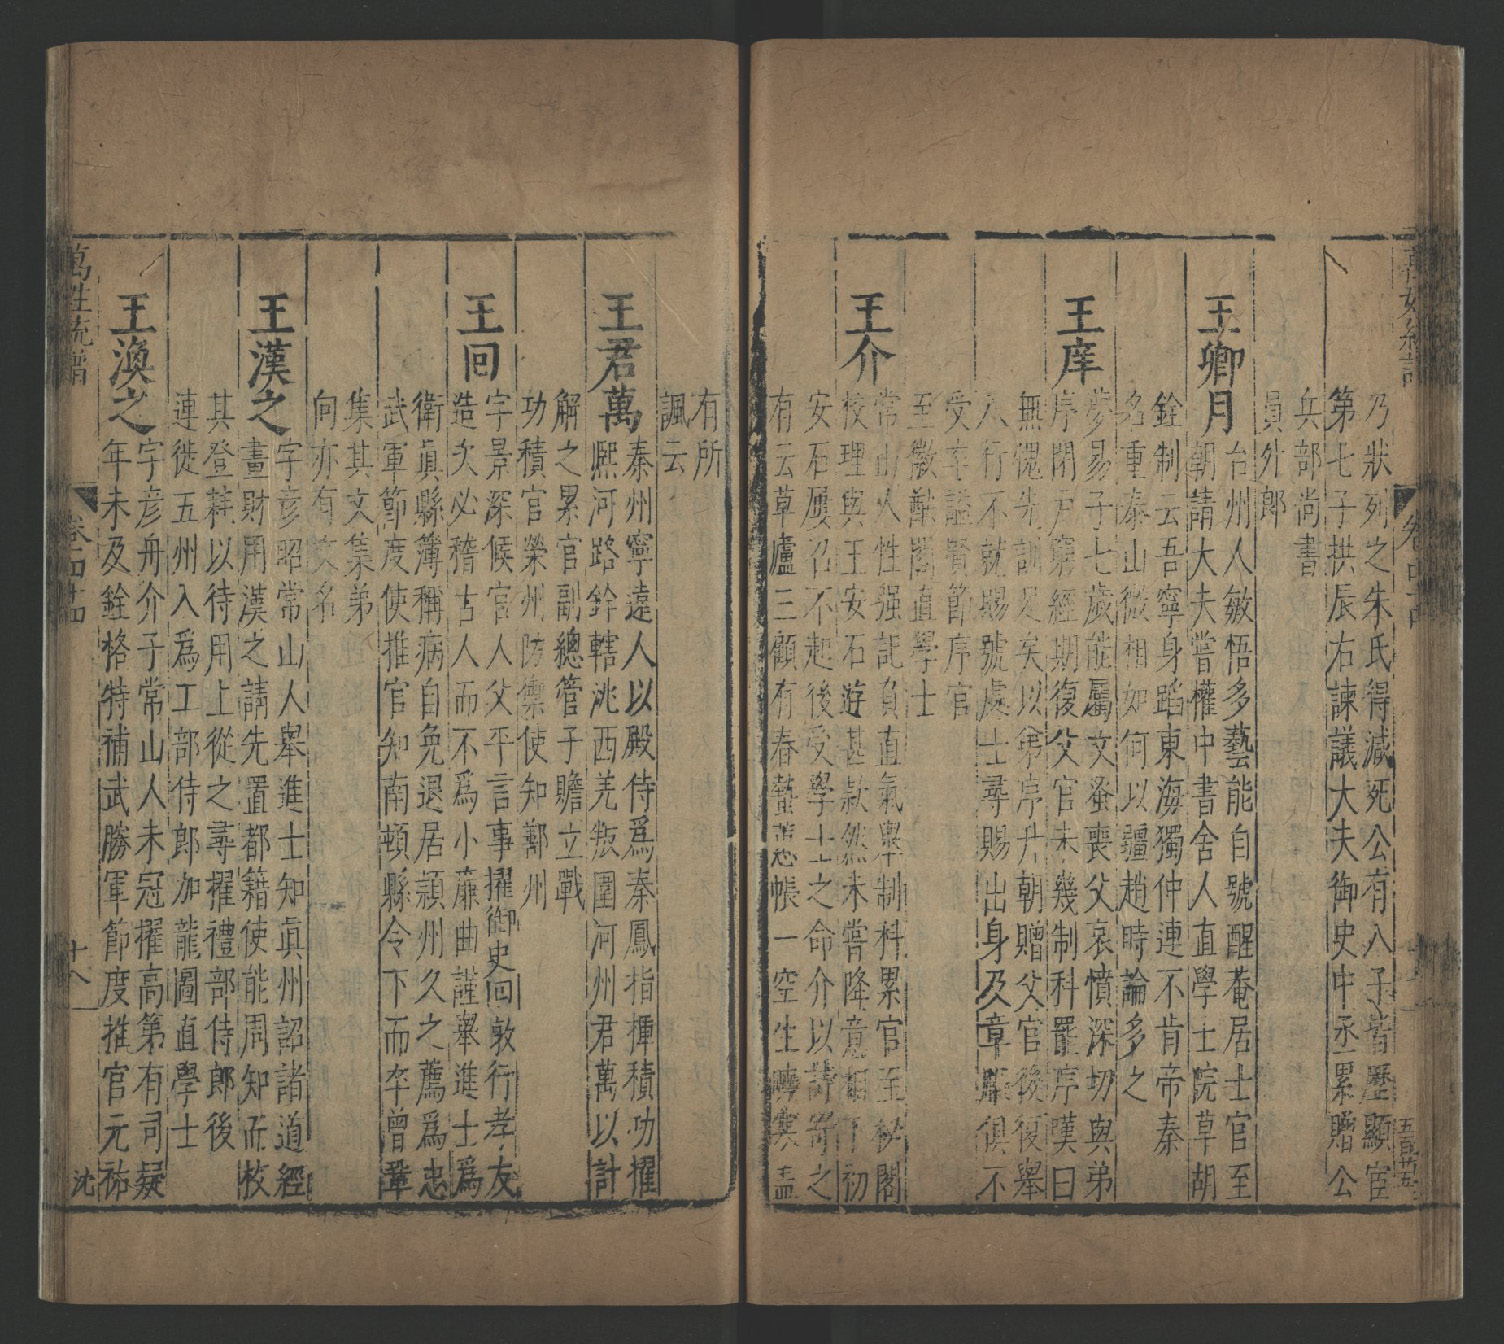 萬姓統譜 卷四十四 五百廿五
乃狀列之朱氏得減死公有八子皆歷顯宦
第七子拱辰右諫議大夫御史中丞累贈公
兵部尚書
員外郎
王卿月 台州人敏悟多藝能自號醒菴居士官至
朝請大夫嘗權中書舍人直學士院草胡
銓制云吾寧身蹈東海獨仲連不肯帝秦
名重泰山微相如何以疆趙時論多之
王庠 夢易子七歲能屬文蚤喪父哀憤深切與弟
序閉戶窮經期復父官未幾制科罷序嘆曰
無愧先訓足矣以弟序升朝贈父官後復舉
八行不就賜號處士尋賜出身及章服俱不
受卒謚賢節序官
至徽猷閣直學士
王介 常山人性强記負直氣舉制科累官至秘閣
校理與王安石遊甚款然未嘗降意相下初
安石屢召不起後受學士之命介以詩寄之
有云草廬三顧有春蟄蕙帳一空生曉寒盖
有所
諷云
王君萬 秦州寧遠人以殿侍爲秦鳳指揮積功擢
熙河路鈐轄洮西羌叛圍河州君萬以計
解之累官副總管子贍立戰
功積官榮州防禦使知鄯州
王回 字景深候官人父平言事擢御史回敦行孝友
造次必稽古人而不爲小廉曲謹舉進士爲
衛眞縣簿稱病自免退居潁州久之薦爲忠
武軍節度使推官知南頓縣令下而卒曾鞏
集其文集弟
向亦有文名
王漢之 字彦昭常山人舉進士知眞州詔諸道經
畫財用漢之請先置都籍使能周知而校
其登耗以待用上從之尋擢禮部侍郎後
連徙五州入爲工部侍郎加龍圖直學士
王渙之 字彦舟介子常山人未冠擢高第有司疑
年未及銓格特補武勝軍節度推官元祐
萬姓統譜 卷四十四 十八 沈